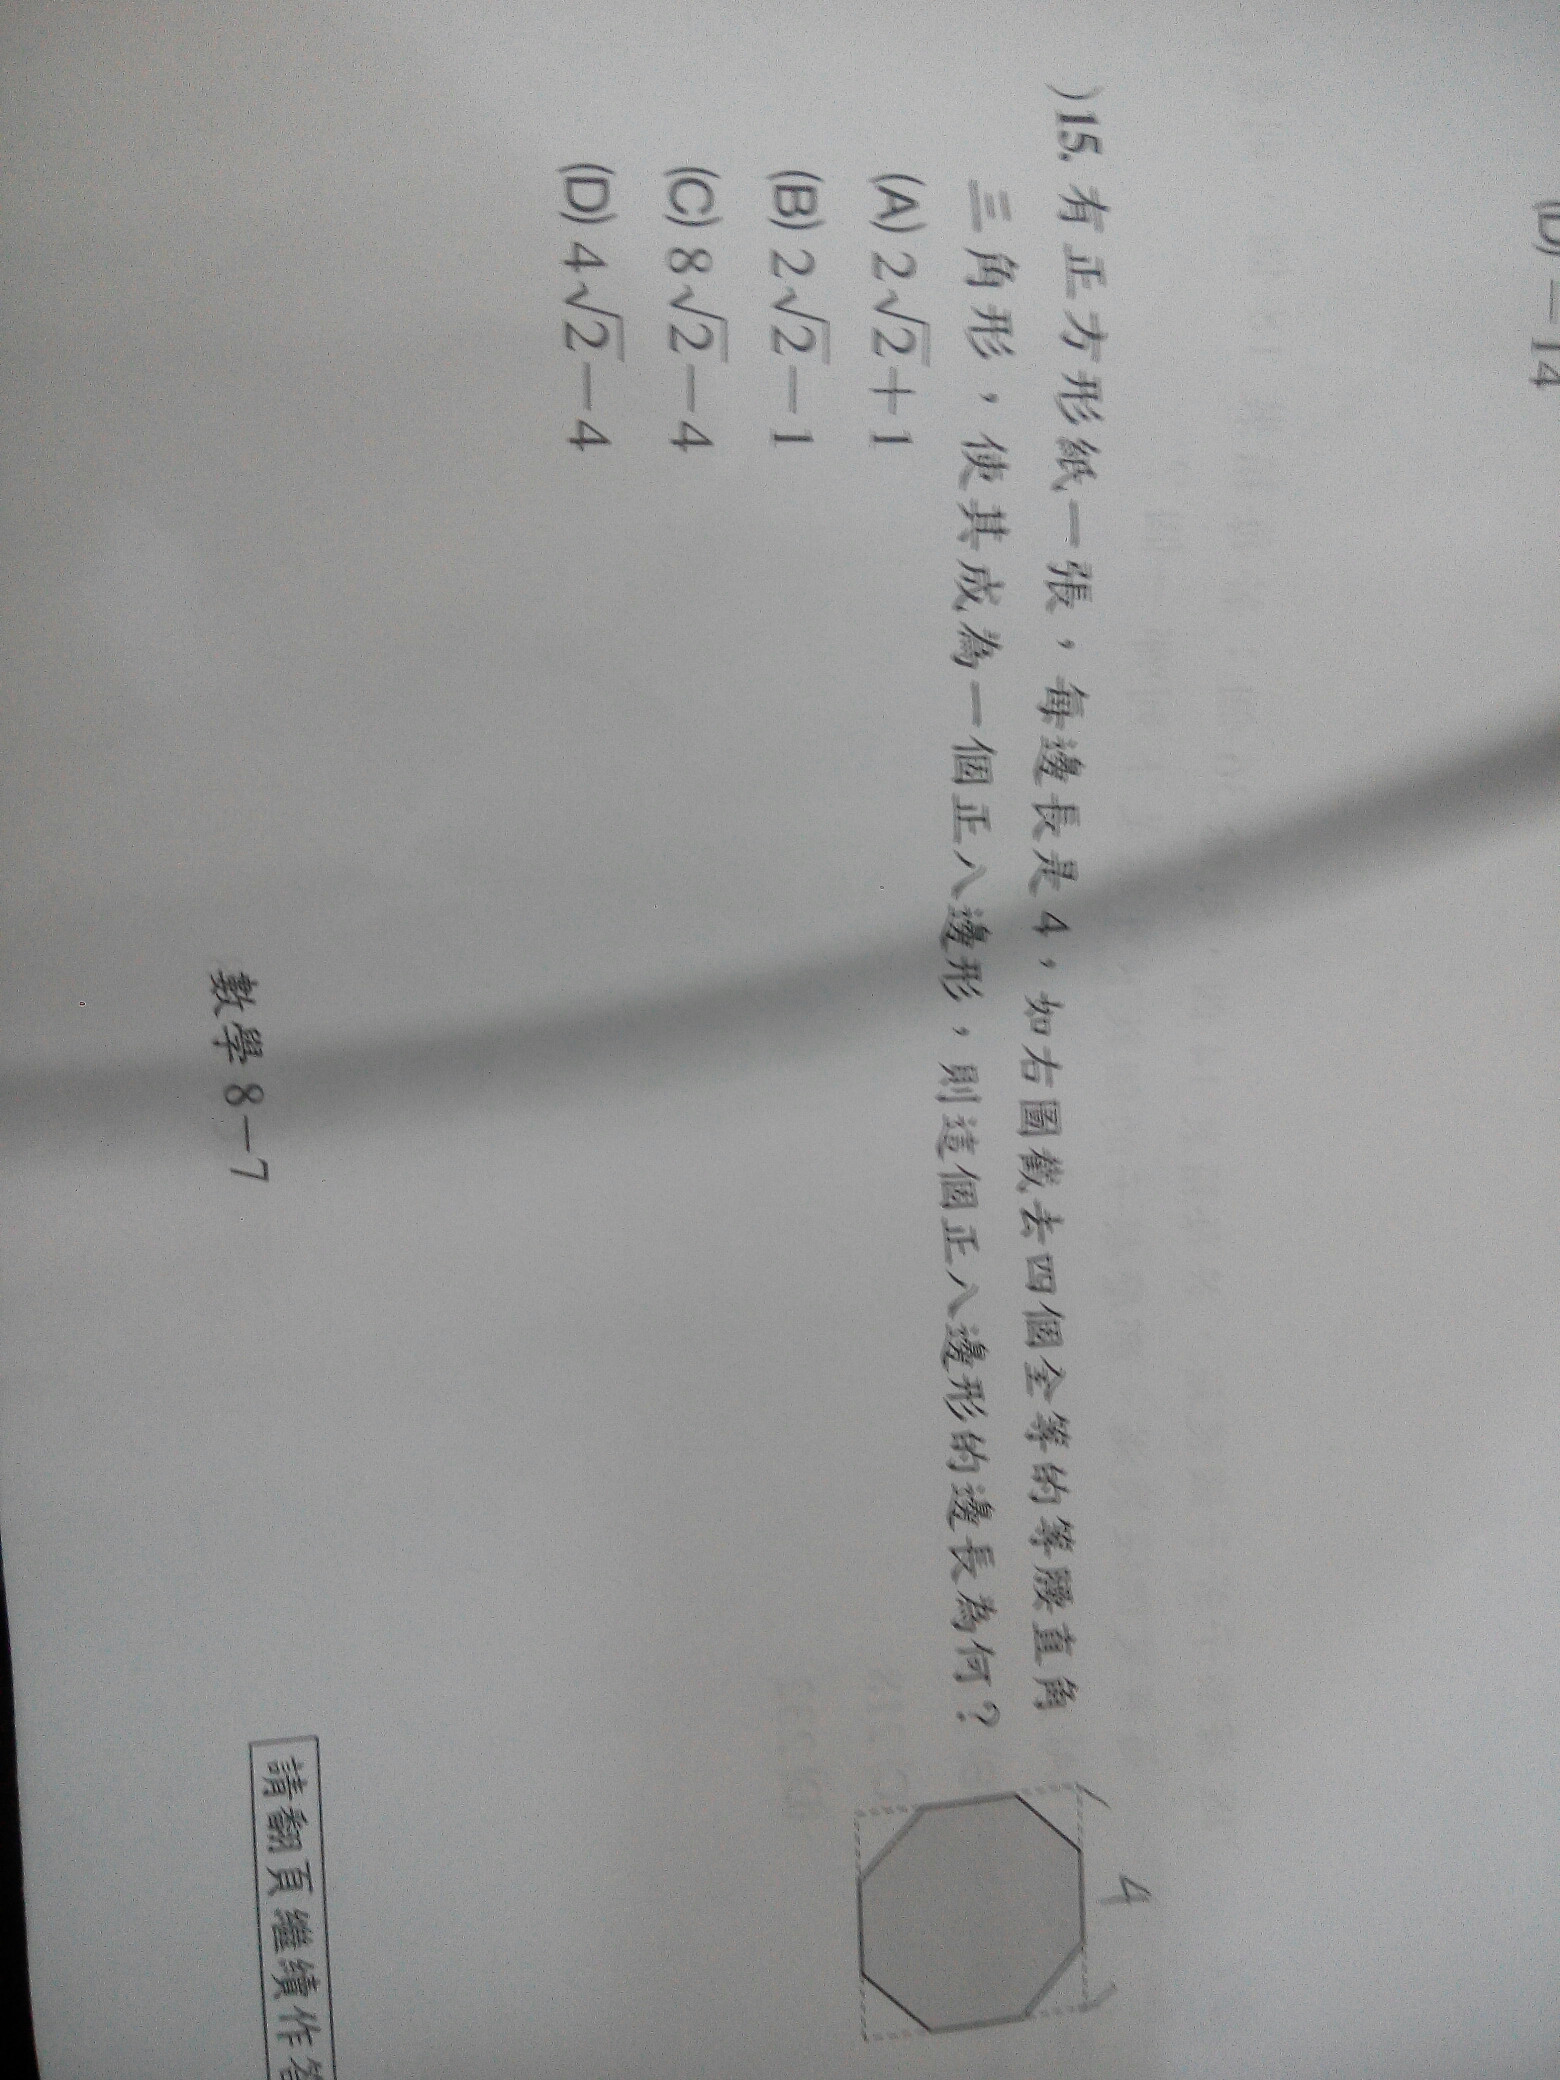 (D)－14
)15. 有正方形紙一張，每邊長是4，如右圖截去四個全等的等腰直角
三角形，使其成為一個正八邊形，則這個正八邊形的邊長為何？
(A) 2√2＋1
(B) 2√2－1
(C) 8√2－4
(D) 4√2－4
4
數學 8－7
請翻頁繼續作答